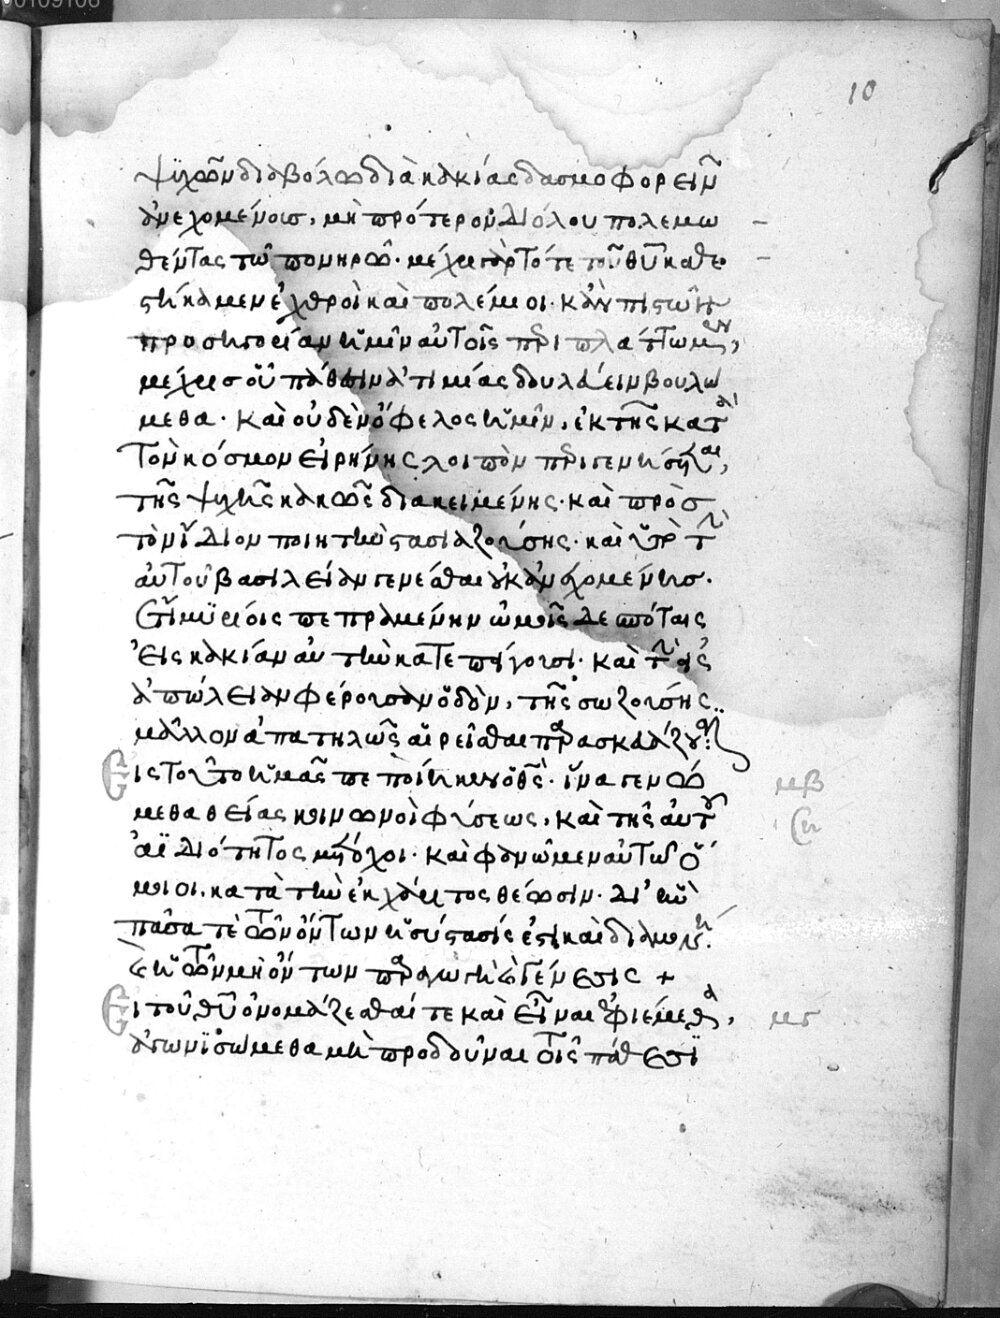 10
ψυχῶν διαβόλω διὰ κακίας δασμοφορεῖν
ἀνεχομένοις, μὴ πρότερον διόλου πολεμω
θέντας τῶ πονηρῶ· μέχρι γὰρ τότε τοῦ θῦ καθε
στήκαμεν ἐχθροὶ καὶ πολέμιοι· κἂν πιστῶν
προσηγορίαν ἡμῖν αὐτοῖς περιπλάττωμεν,
μέχρις οὗ πάθεσιν ἀτιμίας δουλεύειν βουλώ
μεθα· καὶ οὐδὲν ὄφελος ἡμῖν, ἐκ τῆς κατὰ
τὸν κόσμον εἰρήνης λοιπὸν περιγενήσεται,
τῆς ψυχῆς κακῶς διακειμένης· καὶ πρὸς
τὸν ἴδιον ποιητὴν στασιαζούσης· καὶ ὑπὸ τὴν
αὐτοῦ βασιλείαν γενέσθαι οὐκ ἀνεχομένης·
ἔτι μυρίοις πεπραμένην ὠμοῖς δεσπόταις
εἰς κακίαν αὐτὴν κατεπείγουσι· καὶ τὴν εἰς
ἀπώλειαν φέρουσαν ὁδὸν, τῆς σωζούσης
μᾶλλον ἀπατηλῶς αἱρεῖσθαι παρασκευάζουσιν
Εἰς τοῦτο ἡμᾶς πεποίηκεν ὁ θς· ἵνα γενώ
μβ
μεθα θείας κοινωνοὶ φύσεως, καὶ τῆς αὐτοῦ
ἀϊδιότητος μέτοχοι· καὶ φανῶμεν αὐτῶ ὅ
μοιοι, κατὰ τὴν ἐκ χάριτος θέωσιν· δι' ἣν
πᾶσα τὲ τῶν ὄντων ἡ σύστασίς ἐστι καὶ διαμονή·
καὶ ἡ τῶν μὴ ὄντων παραγωγὴ καὶ γένεσις +
Εἰ τοῦ θῦ ὀνομάζεσθαί τε καὶ εἶναι ἐφιέμεθα,
μγ
ἀγωνϊσώμεθα μὴ προδοῦναι τοῖς πάθεσϊ